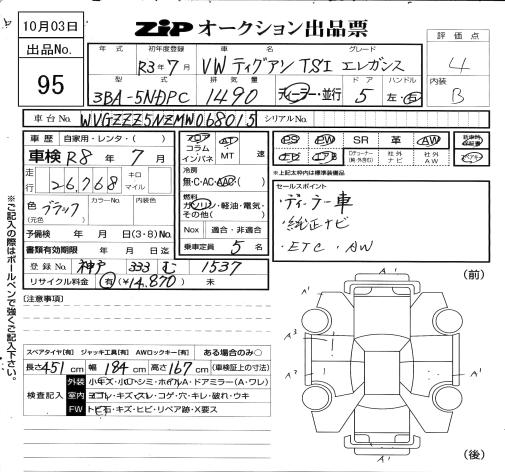 10月03日
ZIP オークション出品票
出品No.
95
評価点
4
内装
B
年式 初年度登録 車名 グレード
R3年7月 VW ティグアン TSI エレガンス
型式 排気量 ドア ハンドル
3BA-5NDPC 1490 ディーラー・並行 5 左・右
車台No. WVGZZZ5NZMW068015 シリアルNo.
車歴 自家用・レンタ・( )
車検 R8年7月
走行 26,768 キロ マイル
色 ブラック (元色) カラーNo. 内装色
予備検 年 月 日(3・8)No.
書類有効期限 年 月 日迄
登録No. 神戸 333 む 1537
リサイクル料金 有(¥14,870) 未
フロア コラム インパネ AT MT 速
冷房
無・C・AC・AAC( )
燃料
ガソリン・軽油・電気・その他( )
Nox 適合・非適合
乗車定員 5 名
PS PW SR 革 AW
ナビ エアB Dディーラー(純・外含む) 社外ナビ 社外AW
新車時保証書
スペアキー
※上記太枠内は標準装備品
セールスポイント
・ディーラー車
・純正ナビ
・ETC・AW
(注意事項)
※ご記入の際はボールペンで強くご記入下さい。
スペアタイヤ[有] ジャッキ工具[有] AWロックキー[有] ある場合のみ○
長さ451cm 幅184cm 高さ167cm (車検証上の寸法)
検査記入
外装 小キズ・小凹・シミ・ホイルA・ドアミラー(A・ワレ)
室内 ヨゴレ・キズ・スレ・コゲ・穴・キレ・破れ・ウキ
FW トビ石・キズ・ヒビ・リペア跡・X要ス
(前)
A' A'
A' A'
A3 1
A2 1
A'
(後)